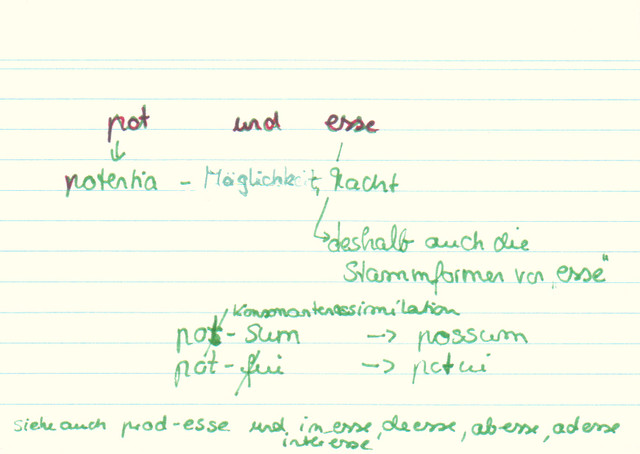 pot und esse
potentia - Möglichkeit, Macht
deshalb auch die
Stammformen von „esse"
Konsonantenassimilation
pot - sum -> possum
pot - fui -> potui
siehe auch prod-esse und inesse, deesse, abesse, adesse
interesse